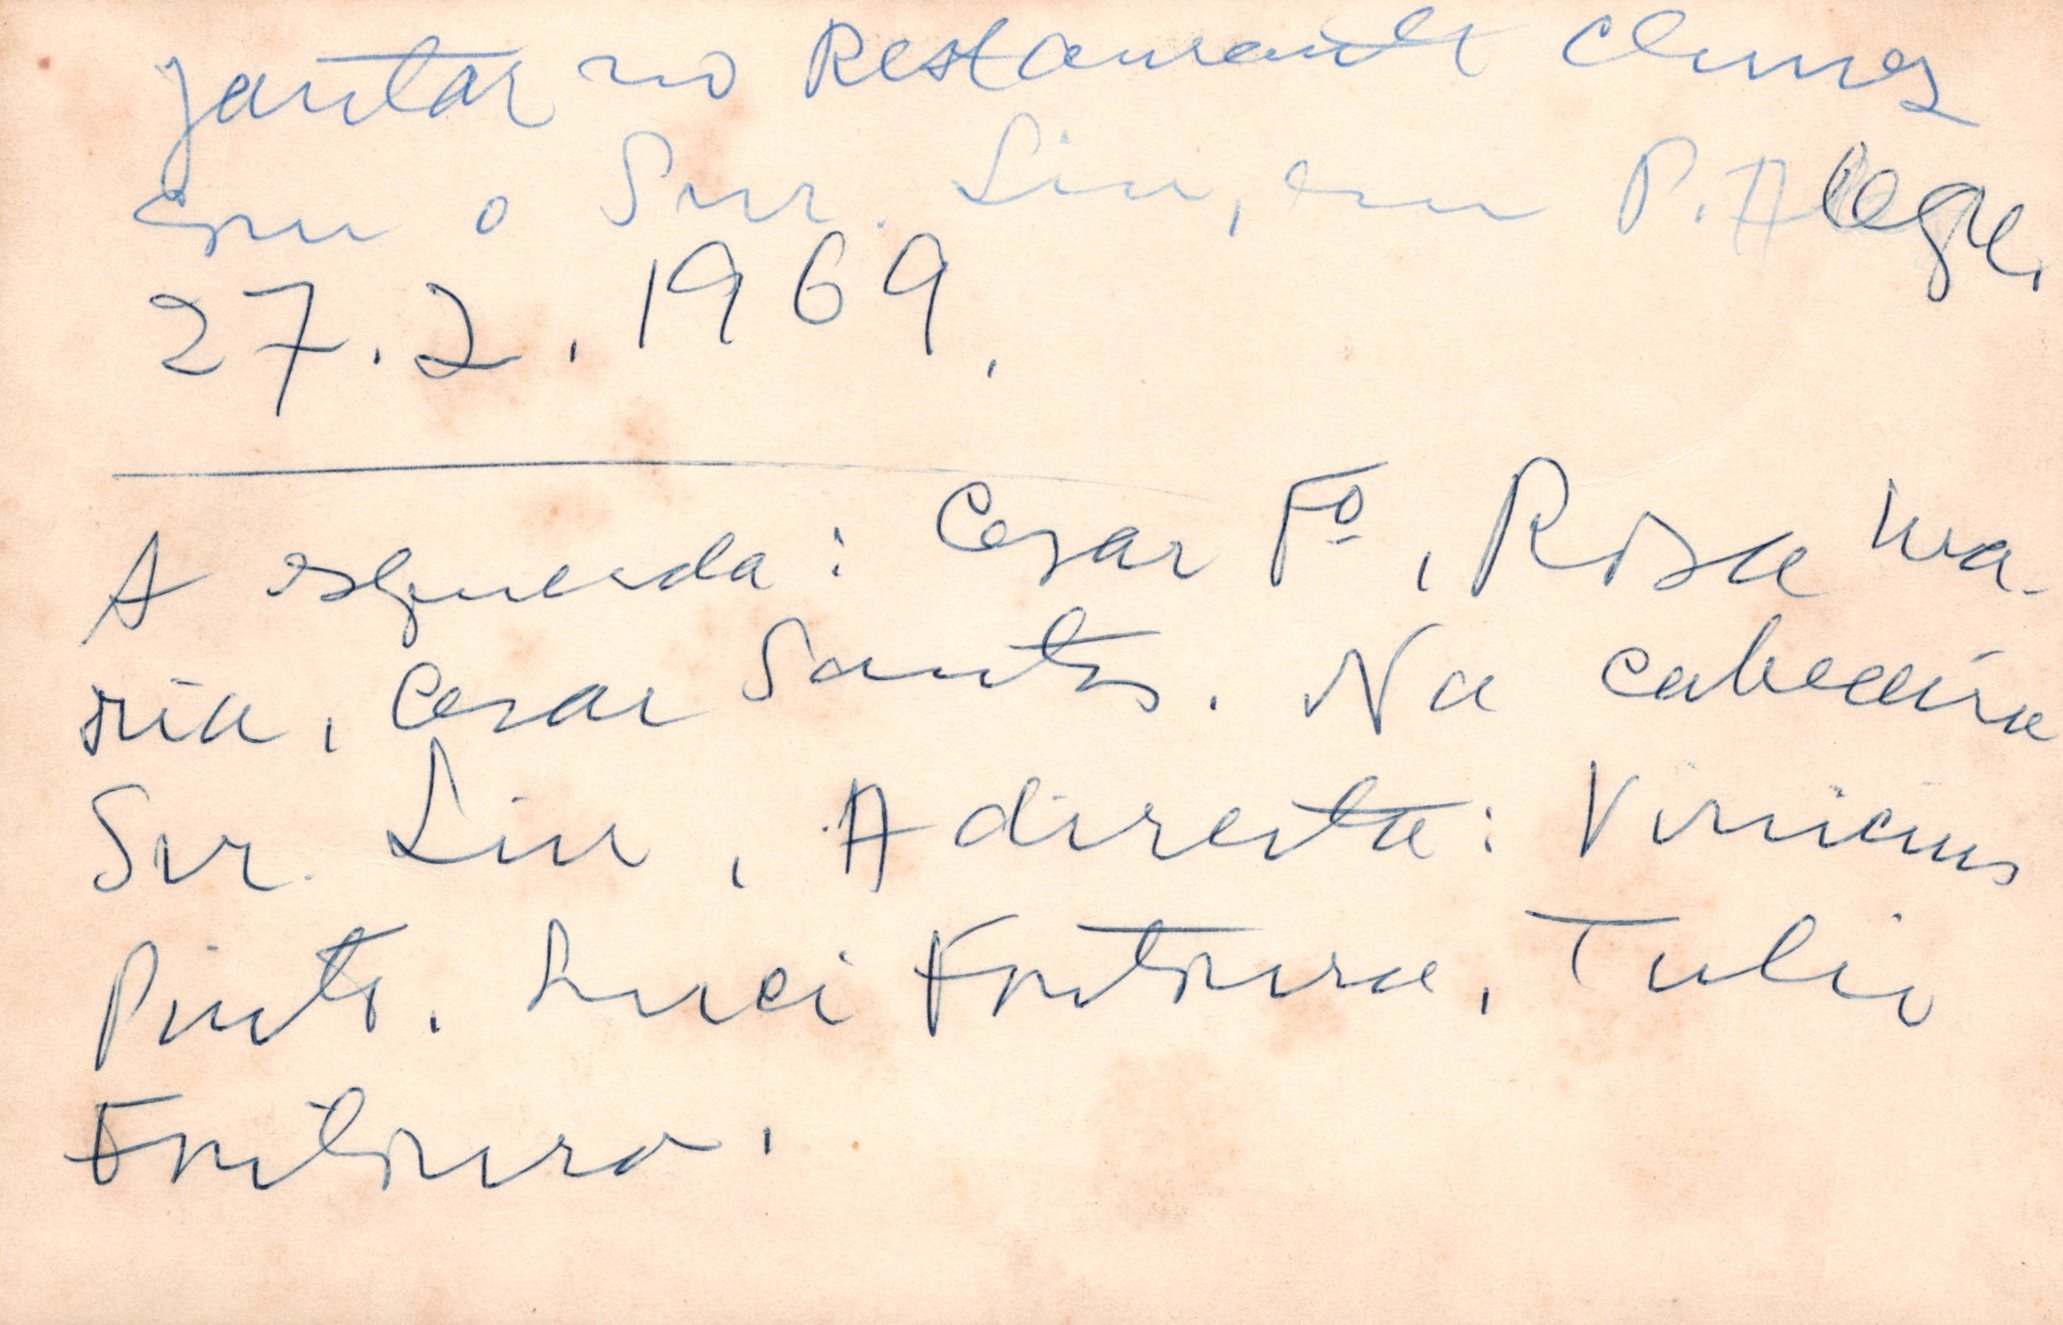 Jantar no Restaurante Chines
com o Snr. Lin, em P. Alegre,
27.2.1969.
A esquerda: Cesar Fº, Rosa Ma-
ria, Cesar Santos. Na cabeceira
Snr. Lin, A direita: Vinicius
Pinto. Luci Fontoura, Tulio
Fontoura.